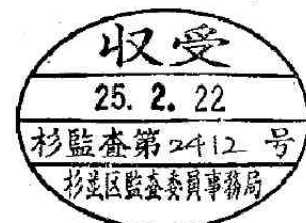 収受
25. 2. 22
杉監査第2412号
杉並区監査委員事務局